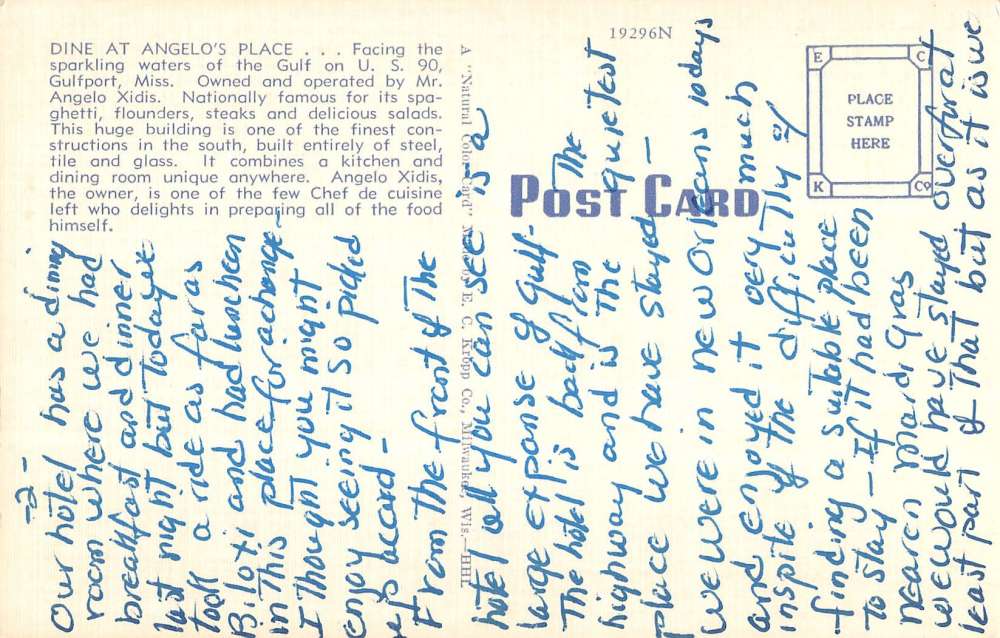 DINE AT ANGELO'S PLACE . . . Facing the
sparkling waters of the Gulf on U. S. 90,
Gulfport, Miss. Owned and operated by Mr.
Angelo Xidis. Nationally famous for its spa-
ghetti, flounders, steaks and delicious salads.
This huge building is one of the finest con-
structions in the south, built entirely of steel,
tile and glass. It combines a kitchen and
dining room unique anywhere. Angelo Xidis,
the owner, is one of the few Chef de cuisine
left who delights in preparing all of the food
himself.
A "Natural Color Card" Made by E. C. Kropp Co., Milwaukee, Wis.—HHI
19296N
POST CARD
E C
PLACE
STAMP
HERE
K Co
-2-
Our hotel has a dining
room where we had
breakfast and dinner
last night but today we
took a ride as far as
Biloxi and had luncheon
in this place for a change-
I thought you might
enjoy seeing it so picked
up card-
From the front of the
hotel all you can see is a
large expanse of gulf- The
The hotel is back from
highway and is the quietest
place we have stayed-
We were in New Orleans 10 days
and enjoyed it very much
inspite of the difficulty of
finding a suitable place
to stay - If it had been
nearer Mardi Gras
we would have stayed over for at
least part of that but as it is we